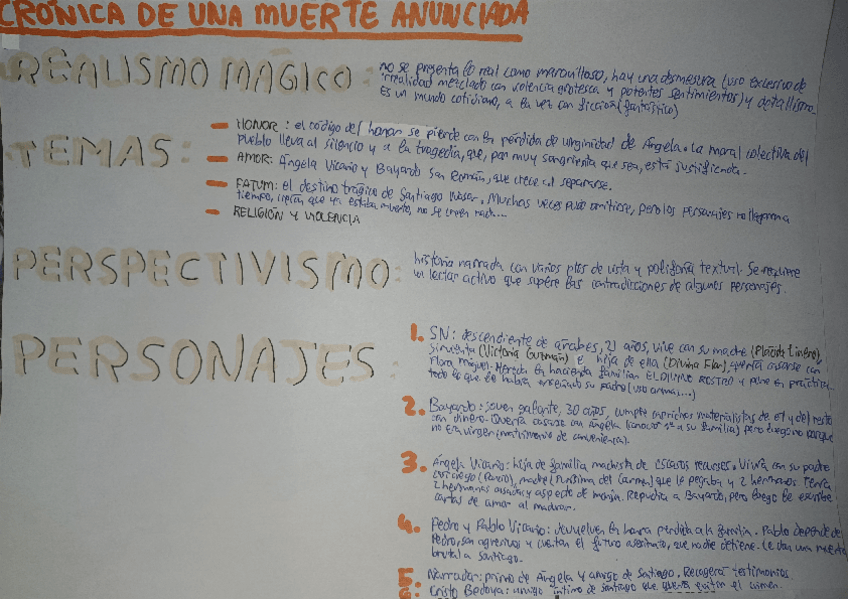 CRÓNICA DE UNA MUERTE ANUNCIADA
REALISMO MÁGICO: no se presenta lo real como maravilloso, hay una desmesura (uso excesivo de
irrealidad mezclado con violencia grotesca y potentes sentimientos) y detallismo.
Es un mundo cotidiano, a la vez con ficción (fantástico)
TEMAS:
- HONOR: el código del honor se pierde con la pérdida de virginidad de Ángela. La moral colectiva del
pueblo lleva al silencio y a la tragedia, que, por muy sangrienta que sea, está justificada.
- AMOR: Ángela Vicario y Bayardo San Román, que crece al separarse.
- FATUM: el destino trágico de Santiago Nasar. Muchas veces pudo omitirse, pero los personajes no llegaron a
tiempo, creían que ya estaba muerto, no se creen nada...
- RELIGIÓN Y VIOLENCIA
PERSPECTIVISMO: historia narrada con varios ptos de vista y polifonía textual. Se requiere
un lector activo que supere las contradicciones de algunos personajes.
PERSONAJES:
1. SN: descendiente de árabes, 21 años, vive con su madre (Plácida Linero),
sirvienta (Victoria Guzmán) e hija de ella (Divina Flor), quería casarse con
Flora Miguel. Hereda la hacienda familiar EL DIVINO ROSTRO y pone en práctica
todo lo que le había enseñado su padre (uso armas...)
2. Bayardo: joven galante, 30 años, cumple caprichos materialistas de él y del resto
con dinero. Quería casarse con Ángela (conoció 1º a su familia) pero luego no porque
no era virgen (matrimonio de conveniencia).
3. Ángela Vicario: hija de familia machista de escasos recursos. Vivía con su padre
ciego (Poncio), madre (Purísima del Carmen) que le pegaba y 2 hermanos. Tenía
2 hermanas casadas y aspecto de monja. Repudia a Bayardo, pero luego le escribe
cartas de amor al madurar.
4. Pedro y Pablo Vicario: devuelven la honra perdida a la familia. Pablo depende de
Pedro, son agresivos y cuentan el futuro asesinato, que nadie detiene. Le dan una muerte
brutal a Santiago.
5. Narrador: primo de Ángela y amigo de Santiago. Recogerá testimonios.
6. Cristo Bedoya: amigo íntimo de Santiago que quería evitar el crimen.